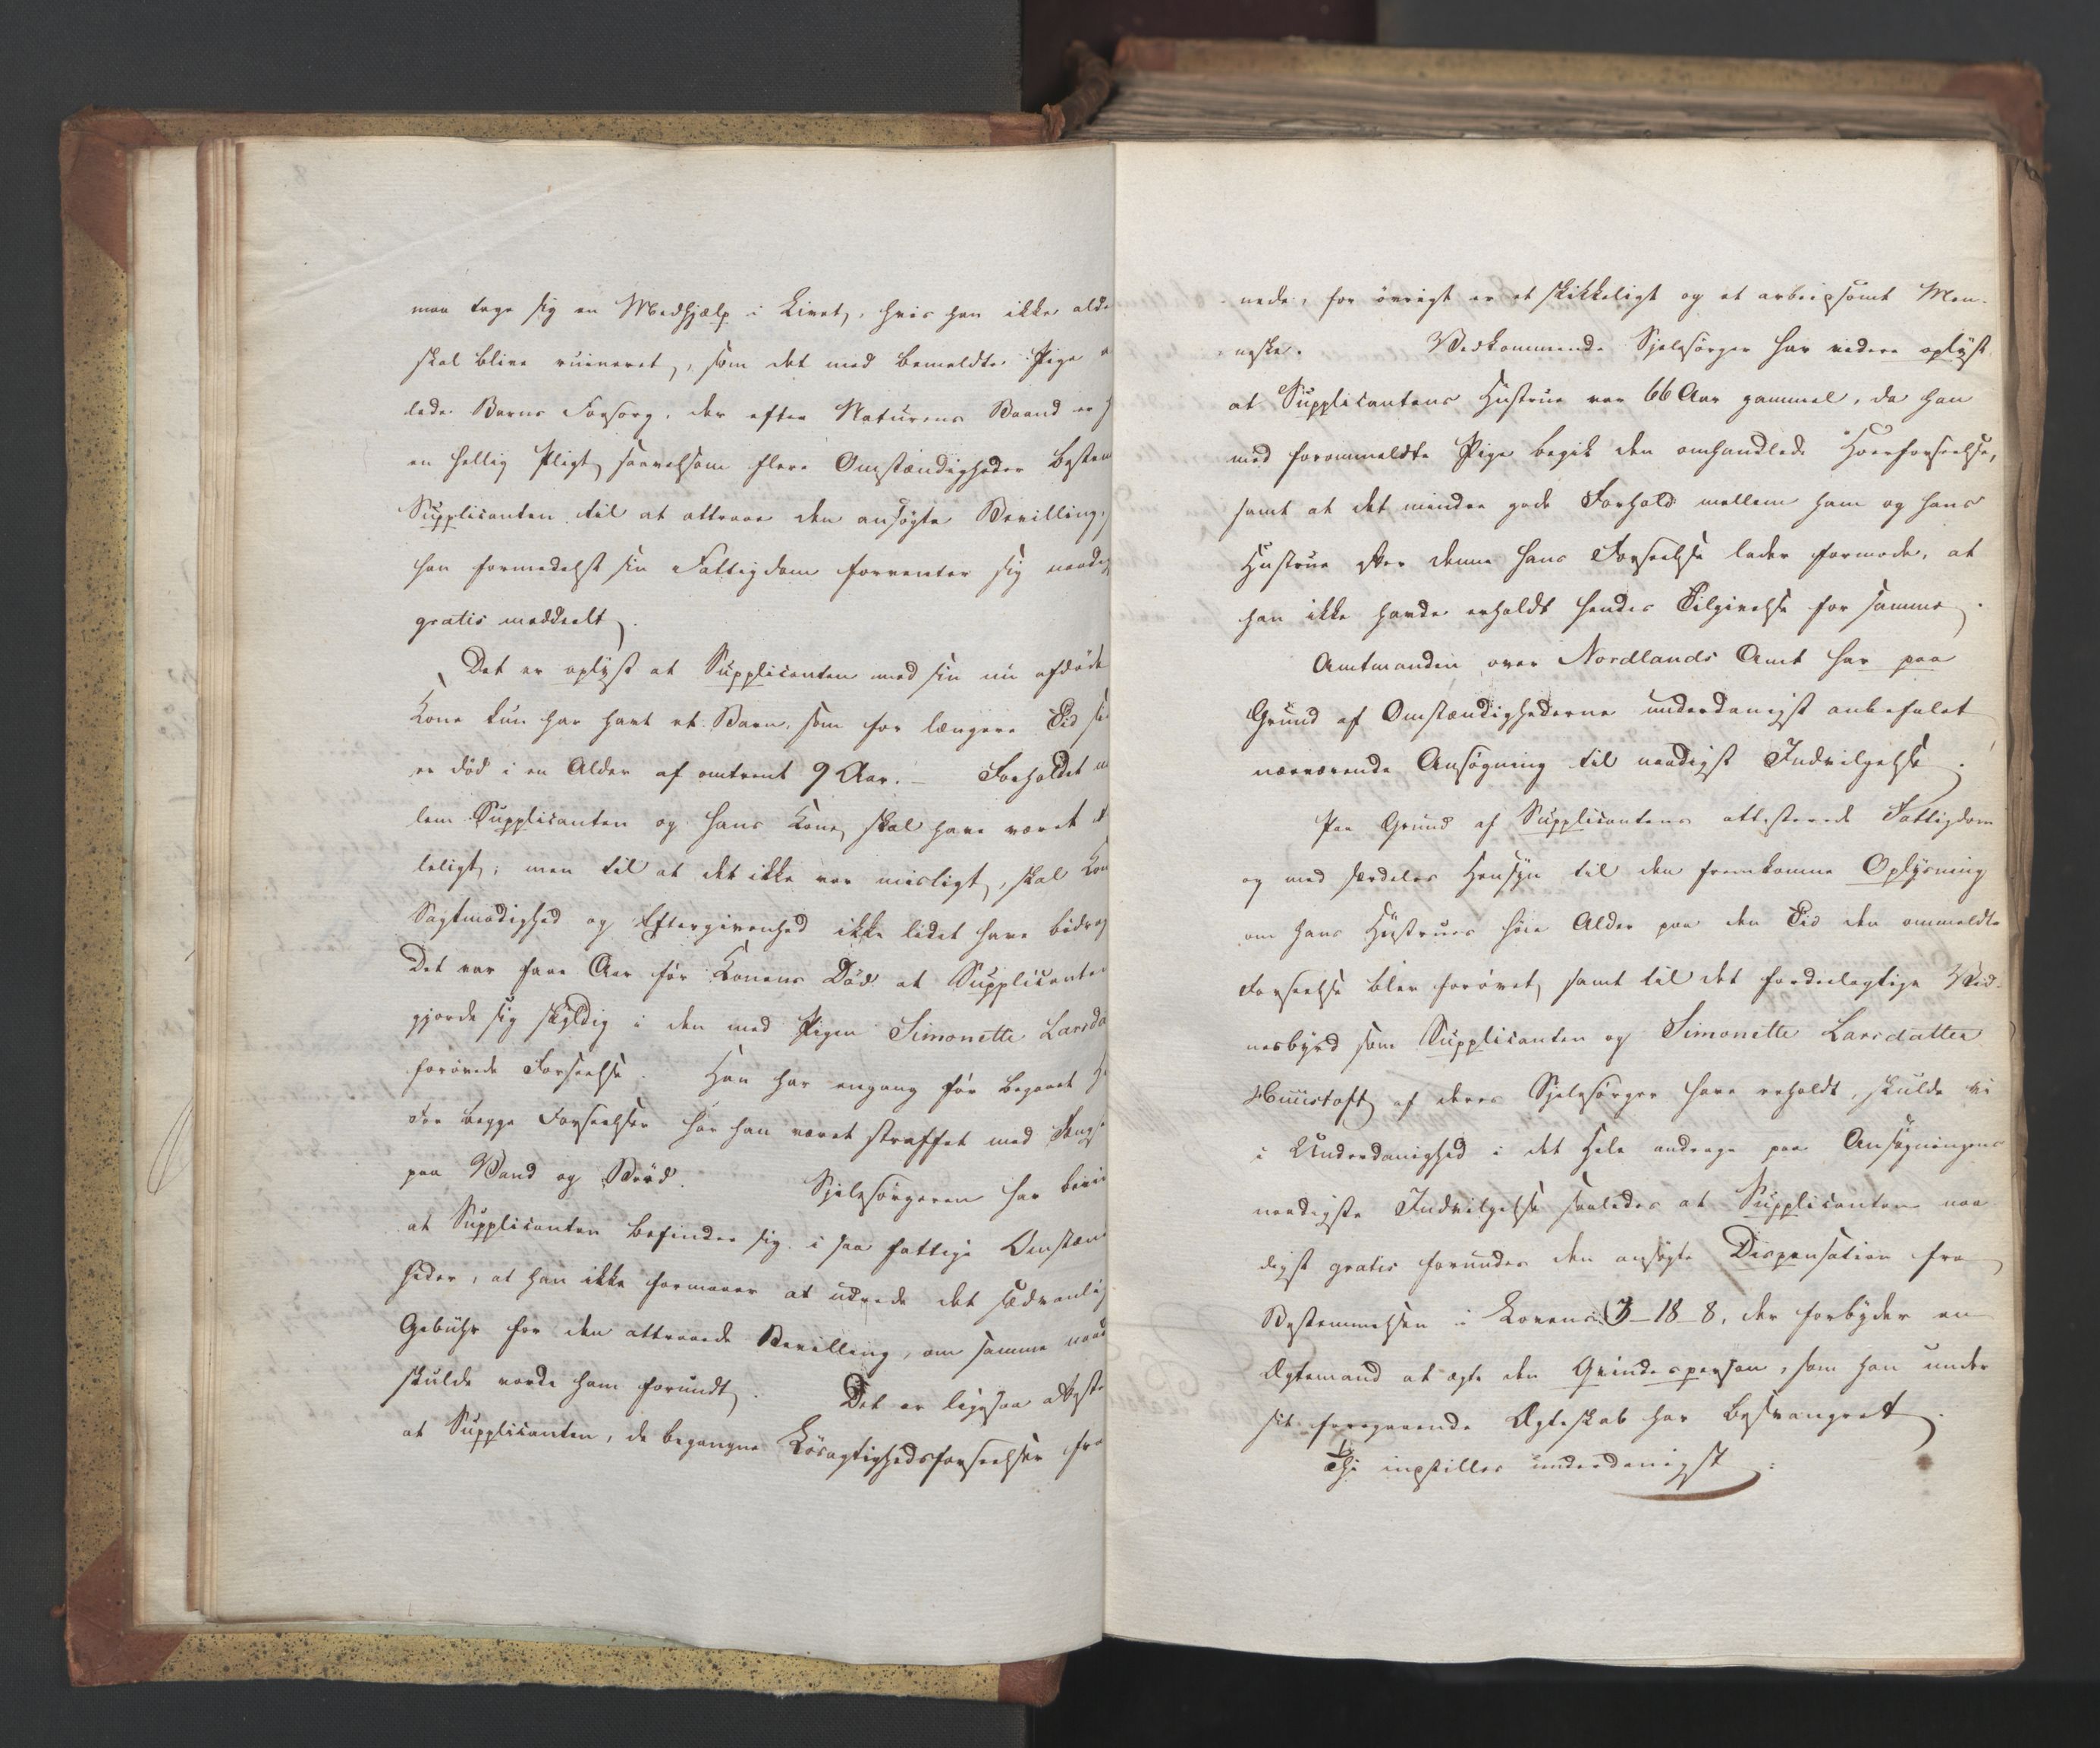 maa tage sig en Medhjælp i Livet, hvis han ikke alde
skal blive ruineret, som det med bemeldte Pige a
lede Barns Forsorg, der efter Naturens Baand er h
en hellig Pligt, saavelsom flere Omstændigheder bestem
Supplicanten til at attraae den ansøgte Bevilling,
han formedelst sin Fattigdom forventer sig naadig
gratis meddeelt.
Det er oplyst at Supplicanten med sin nu afdöde
Kone kun har havt et Barn, som for længere Tid si
er död i en Alder af omtrent 9 Aar. – Forholdet m
lem Supplicanten og hans Kone, skal have været
leligt; men til at det ikke var misligt, skal Kon
Sagtmodighed og Eftergivenhed ikke lidet have bidrag
Det var faae Aar för Konens Död at Supplicanten
gjorde sig skyldig i den med Pigen Simonette Larsda
forövede Forseelse. Han har engang för begaaet H
For begge Forseelser har han været straffet med Fængs
paa Vand og Bröd. Sjelesörgeren har bevi
at Supplicanten befinder sig i saa fattige Omstæn
heder, at han ikke formaaer at udrede det sædvanlig
Gebühr for den attraaede Bevilling, om samme naad
skulde vorde ham forundt. Det er ligesaa attest
at Supplicanten, de begangne Lösagtighedsforseelser fra
nede, for övrigt er et skikkeligt og et arbeidsomt Men-
neske. Vedkommende Sjelesörger har videre oplyst,
at Supplicantens Hustrue var 66 Aar gammel, da han
med forommeldte Pige begik den omhandlede Hoerforseelse,
samt at det mindre gode Forhold mellem ham og hans
Hustrue efter denne hans Forseelse lader formode, at
han ikke havde erholdt hendes Tilgivelse for samme.
Amtmanden over Nordlands Amt har paa
Grund af Omstændighederne underdanigst anbefalet
nærværende Ansögning til naadigst Indvilgelse.
Paa Grund af Supplicantens attesterede Fattigdom
og med særdeles Hensyn til den fremkomne Oplysning
om hans Hustrues höie Alder paa den Tid den ommeldte
Forseelse blev forövet, samt til det fordeelagtige Vid-
nesbyrd som Supplicanten og Simonette Larsdatter
af deres Sjelesörger have erholdt, skulde vi
i Underdanighed i det Hele andrage paa Ansögningens
naadigste Indvilgelse saaledes at Supplicanten naa
digst gratis forundes den ansögte Dispensation fra
Bestemmelsen i Lovens 3–18–8, der forbyder en
Ægtemand at ægte den Qvindesperson, som han under
sit foregaaende Ægteskab har besvangret.
Thi indstilles underdanigst: